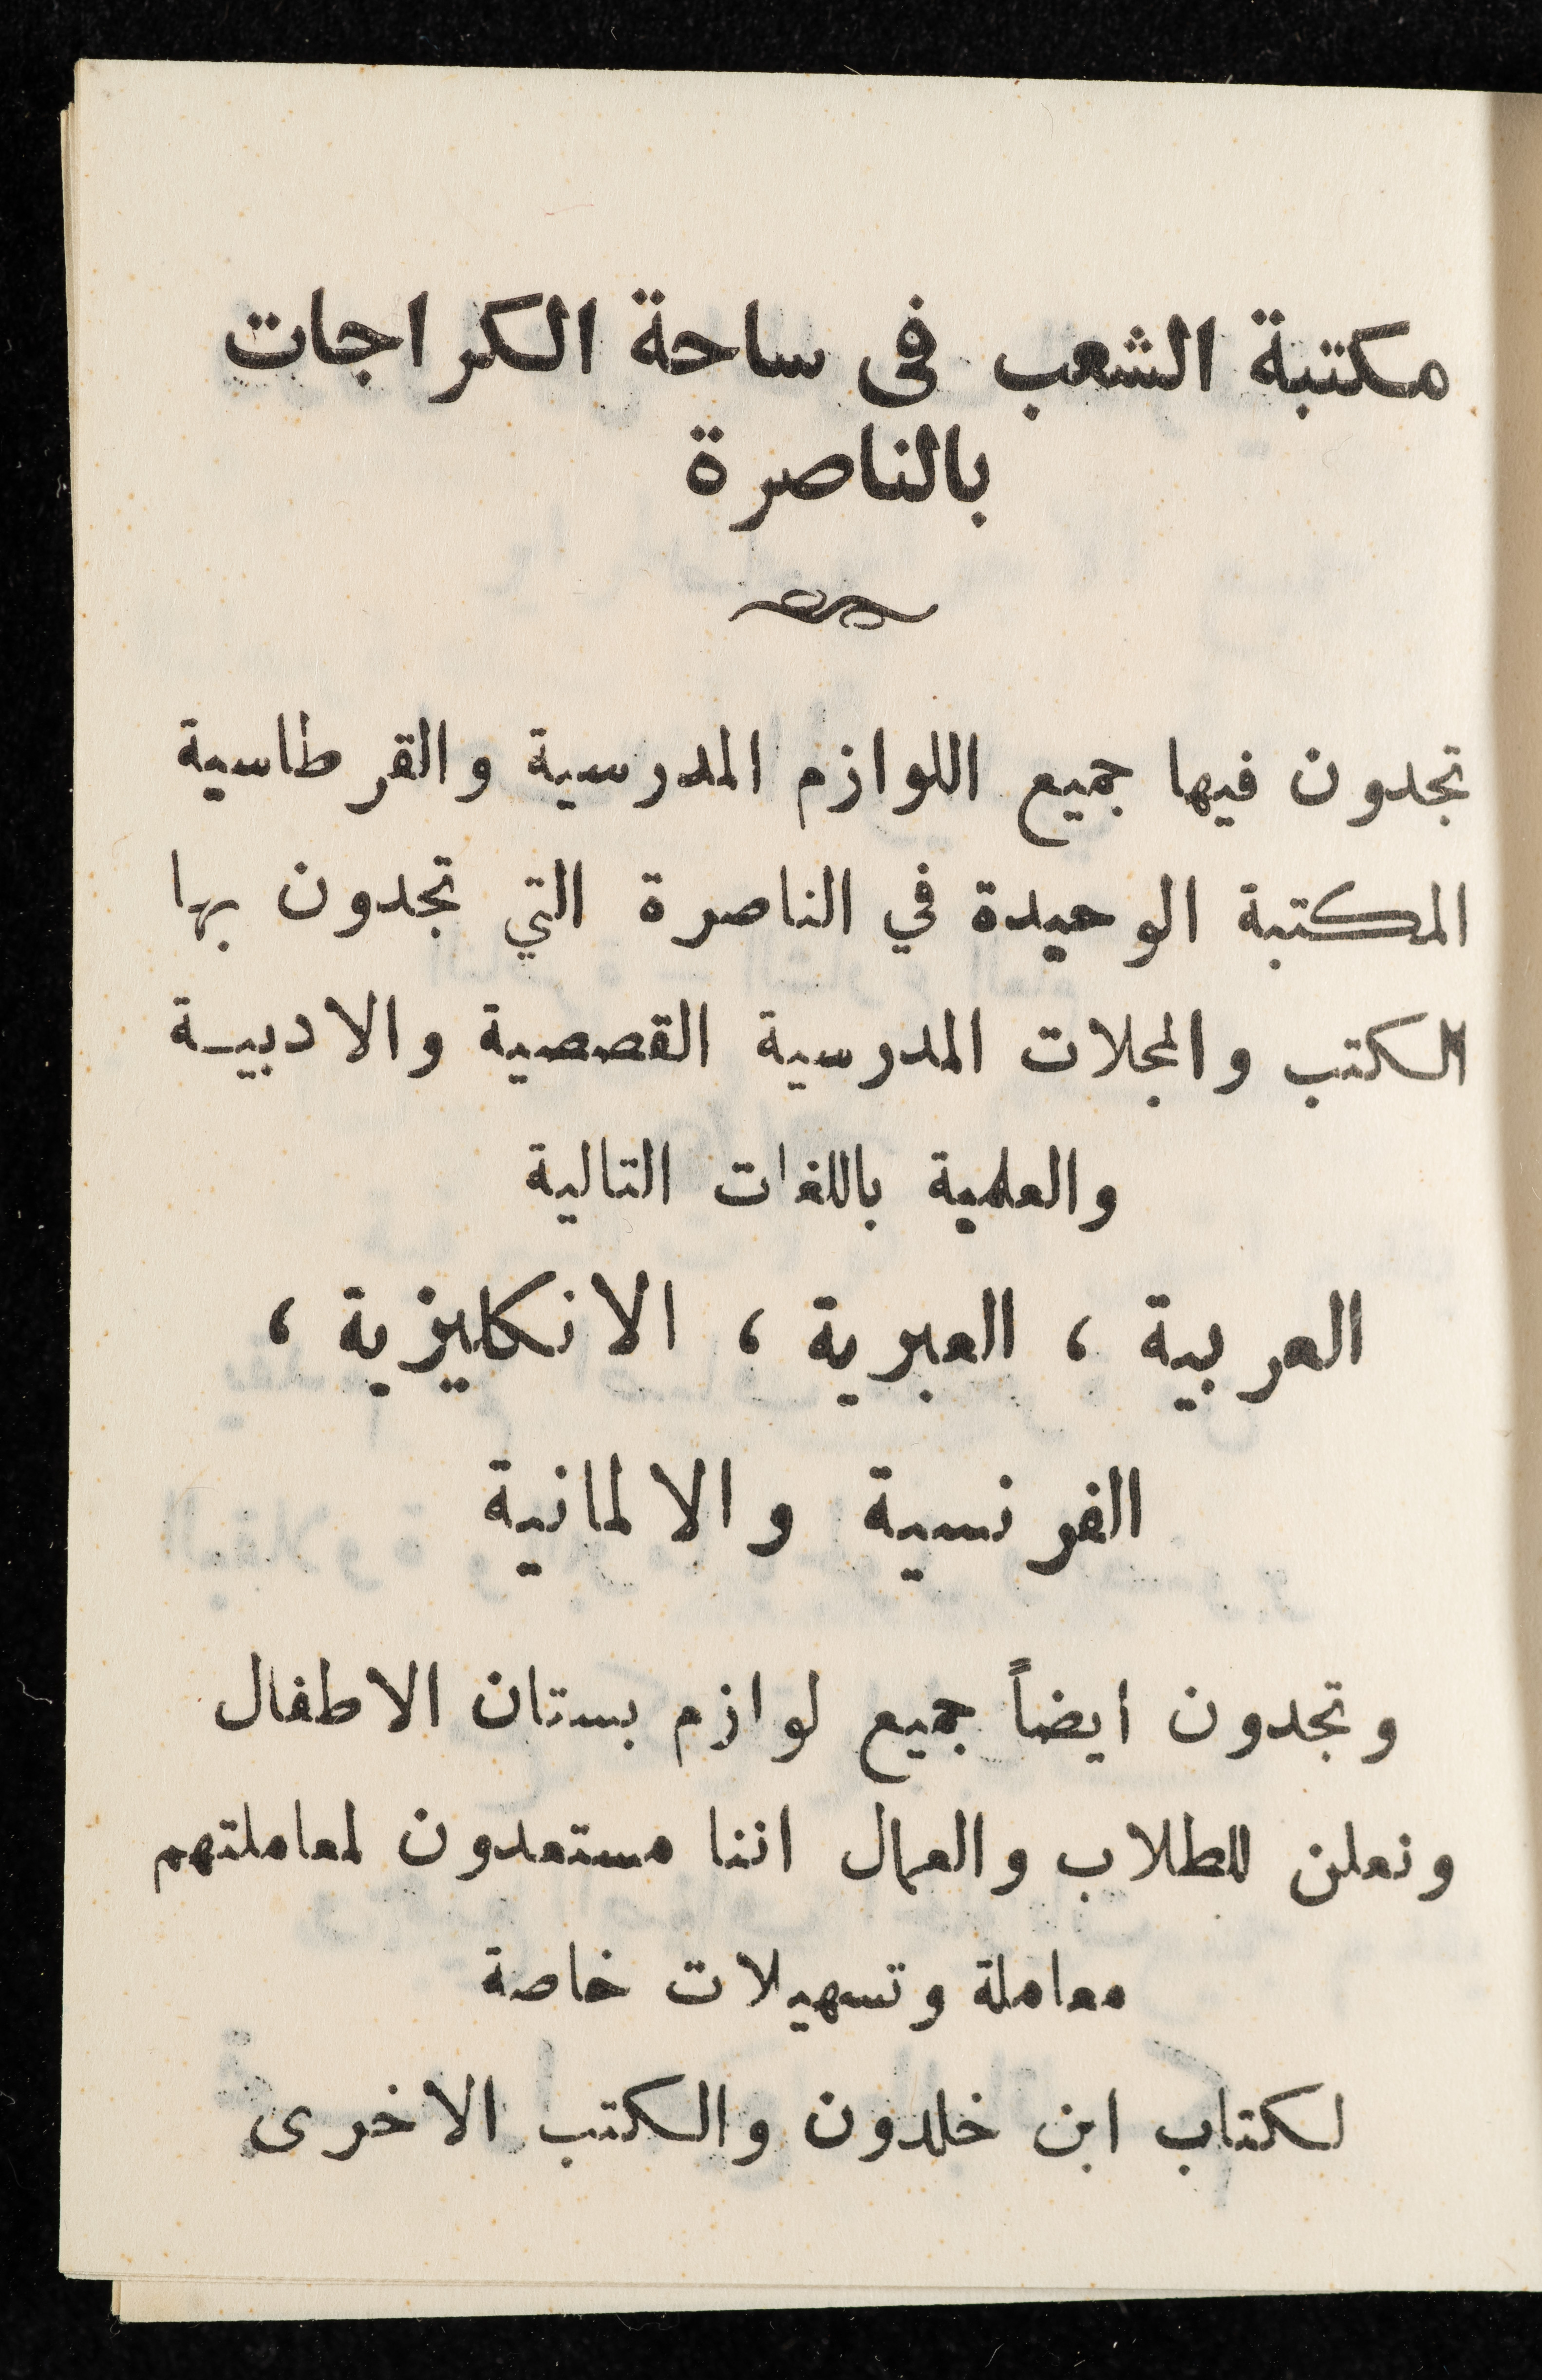 مكتبة الشعب فى ساحة الكراجات
بالناصرة
تجدون فيها جميع اللوازم المدرسية والقرطاسية
المكتبة الوحيدة في الناصرة التي تجدون بها
الكتب والمجلات المدرسية القصصية والادبيـة
والعلمية باللغات التالية
العربية ، العبرية ، الانكليزية ،
الفرنسية والالمانية
وتجدون ايضاً جميع لوازم بستان الاطفال
ونعلن للطلاب والعمال اننا مستعدون لمعاملتهم
معاملة وتسهيلات خاصة
لكتاب ابن خلدون والكتب الاخرى